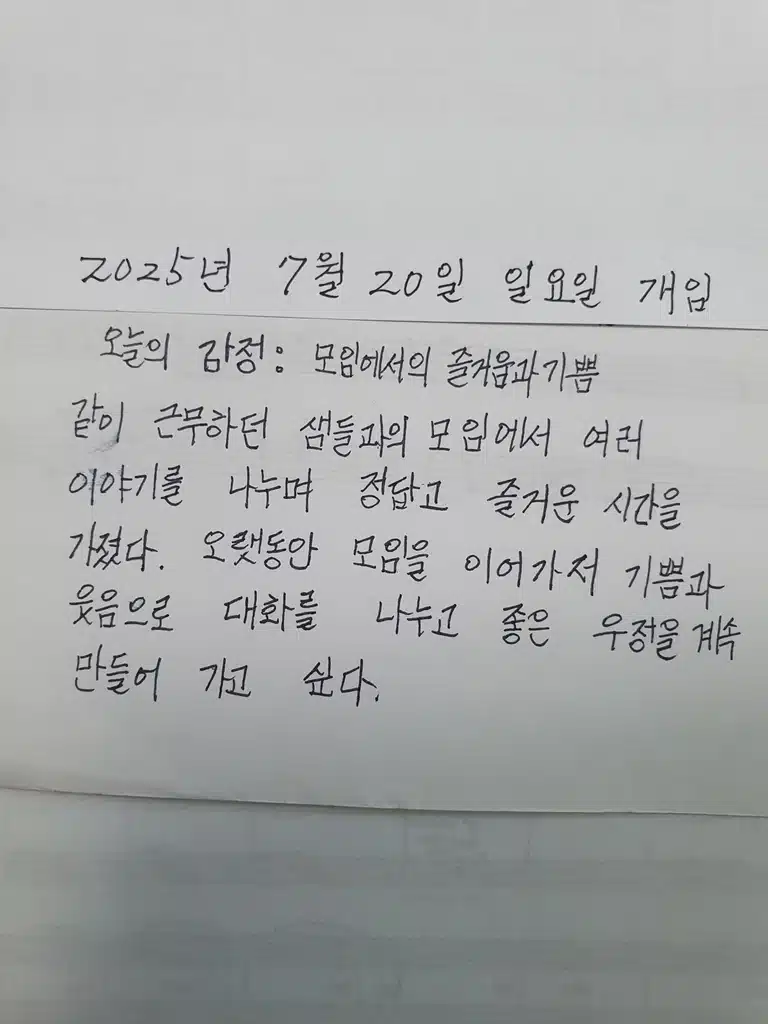 2025년 7월 20일 일요일 개임
오늘의 감정: 모임에서의 즐거움과 기쁨
같이 근무하던 샘들과의 모임에서 여러
이야기를 나누며 정답고 즐거운 시간을
가졌다. 오랫동안 모임을 이어가저 기쁨과
웃음으로 대화를 나누고 좋은 우정을 계속
만들어 가고 싶다.